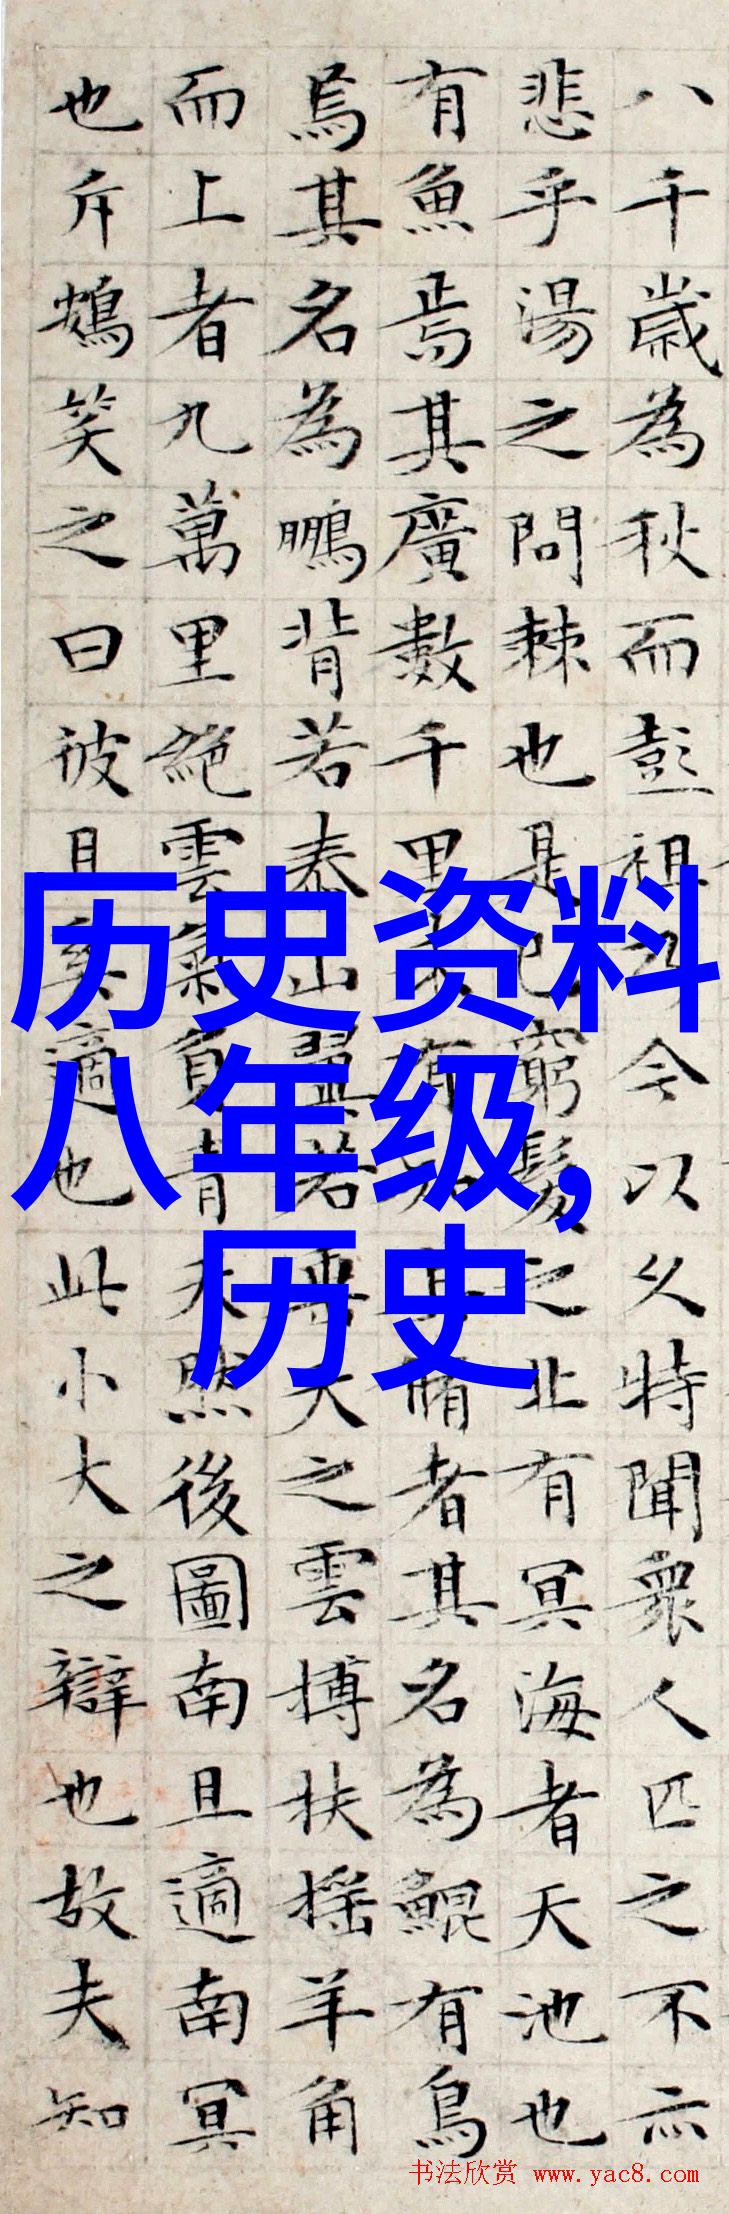 八千歲為秋而彭祖乃今以久特聞衆人匹之不亦
悲乎湯之問棘也是已窮髮之北有冥海者天池也
有魚焉其廣數千里未有知其脩者其名為鯤有鳥
焉其名為鵬背若泰山翼若垂天之雲搏扶搖羊角
而上者九萬里絕雲氣負青天然後圖南且適南冥
也斥鴳笑之曰彼且奚適也此小大之辯也故夫知
历史资料
八年级,
历史
书法欣赏 www.yac8.com